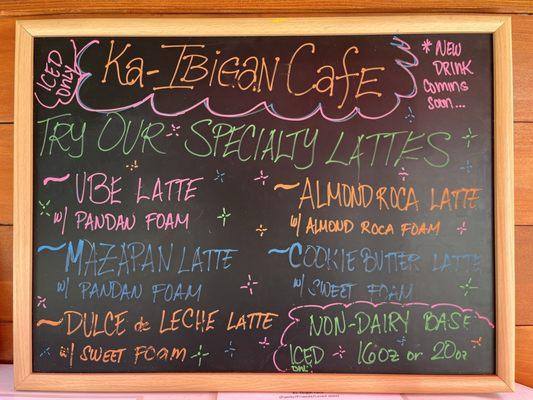 ICED
ONLY
KA-IBIGAN CAFE
* NEW
DRINK
COMING
SOON...
TRY OUR SPECIALTY LATTES
~ UBE LATTE
w/ PANDAN FOAM
~ MAZAPAN LATTE
w/ PANDAN FOAM
~ DULCE de LECHE LATTE
w/ SWEET FOAM
~ ALMOND ROCA LATTE
w/ ALMOND ROCA FOAM
~ COOKIE BUTTER LATTE
w/ SWEET FOAM
NON-DAIRY BASE
ICED
ONLY
16oz or 20oz